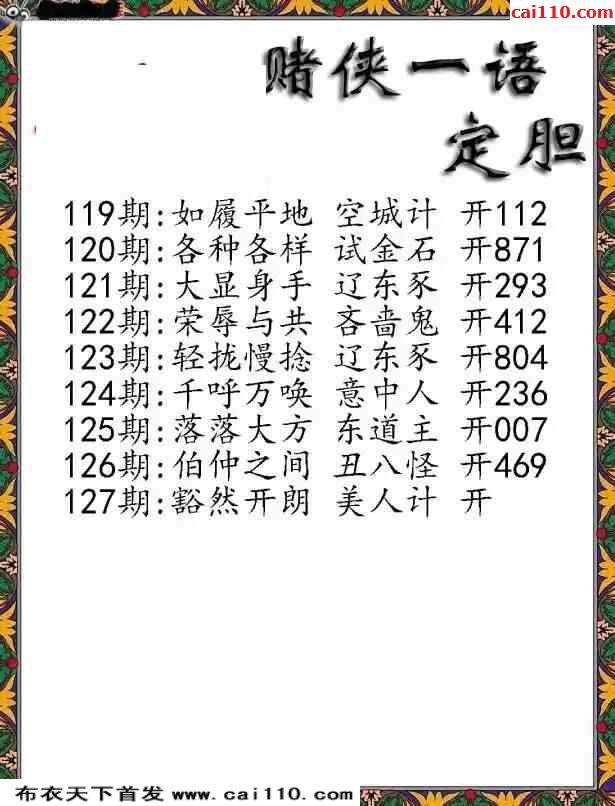 cai110.com
赌侠一语
定胆
119期:如履平地 空城计 开112
120期:各种各样 试金石 开871
121期:大显身手 辽东豕 开293
122期:荣辱与共 吝啬鬼 开412
123期:轻拢慢捻 辽东豕 开804
124期:千呼万唤 意中人 开236
125期:落落大方 东道主 开007
126期:伯仲之间 丑八怪 开469
127期:豁然开朗 美人计 开
布衣天下首发 www.cai110.com